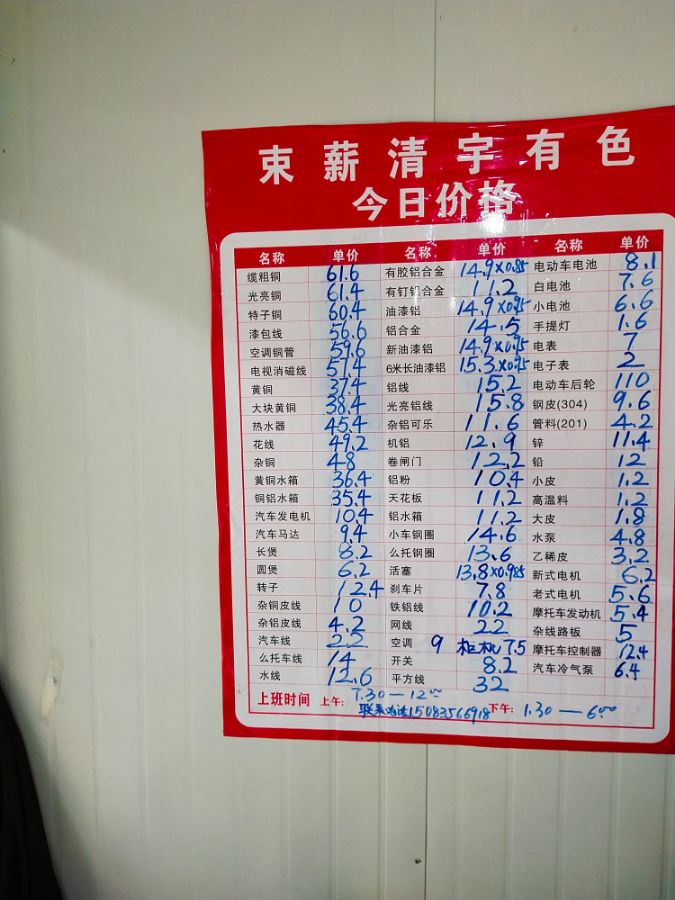 束薪清宇有色
今日价格
名称 单价 名称 单价 名称 单价
缆粗铜 61.6 有胶铝合金 14.9×0.85 电动车电池 8.1
光亮铜 61.4 有钉铝合金 11.2 白电池 7.6
特子铜 60.4 油漆铝 14.9×0.95 小电池 6.6
漆包线 56.6 铝合金 14.5 手提灯 1.6
空调铜管 59.6 新油漆铝 14.9×0.95 电表 7
电视消磁线 57.4 6米长油漆铝 15.3×0.95 电子表 2
黄铜 37.4 铝线 15.2 电动车后轮 110
大块黄铜 38.4 光亮铝线 15.8 钢皮(304) 9.6
热水器 45.4 杂铝可乐 11.6 管料(201) 4.2
花线 49.2 机铝 12.9 锌 11.4
杂铜 48 卷闸门 12.2 铅 12
黄铜水箱 36.4 铝粉 10.4 小皮 1.2
铜铝水箱 35.4 天花板 11.2 高温料 1.2
汽车发电机 10.4 铝水箱 11.2 大皮 1.8
汽车马达 9.4 小车钢圈 14.6 水泵 4.8
长煲 8.2 么托钢圈 13.6 乙稀皮 3.2
圆煲 6.2 活塞 13.8×0.985 新式电机 6.2
转子 12.4 刹车片 7.8 老式电机 5.6
杂铜皮线 10 铁铝线 10.2 摩托车发动机 5.4
杂铝皮线 4.2 网线 22 杂线路板 5
汽车线 22 空调 9 柜机 7.5 摩托车控制器 12.4
么托车线 14 开关 8.2 汽车冷气泵 6.4
水线 12.6 平方线 32
上班时间 上午: 7.30—12⁰⁰ 下午: 1.30—6⁰⁰
联系电话15083566918